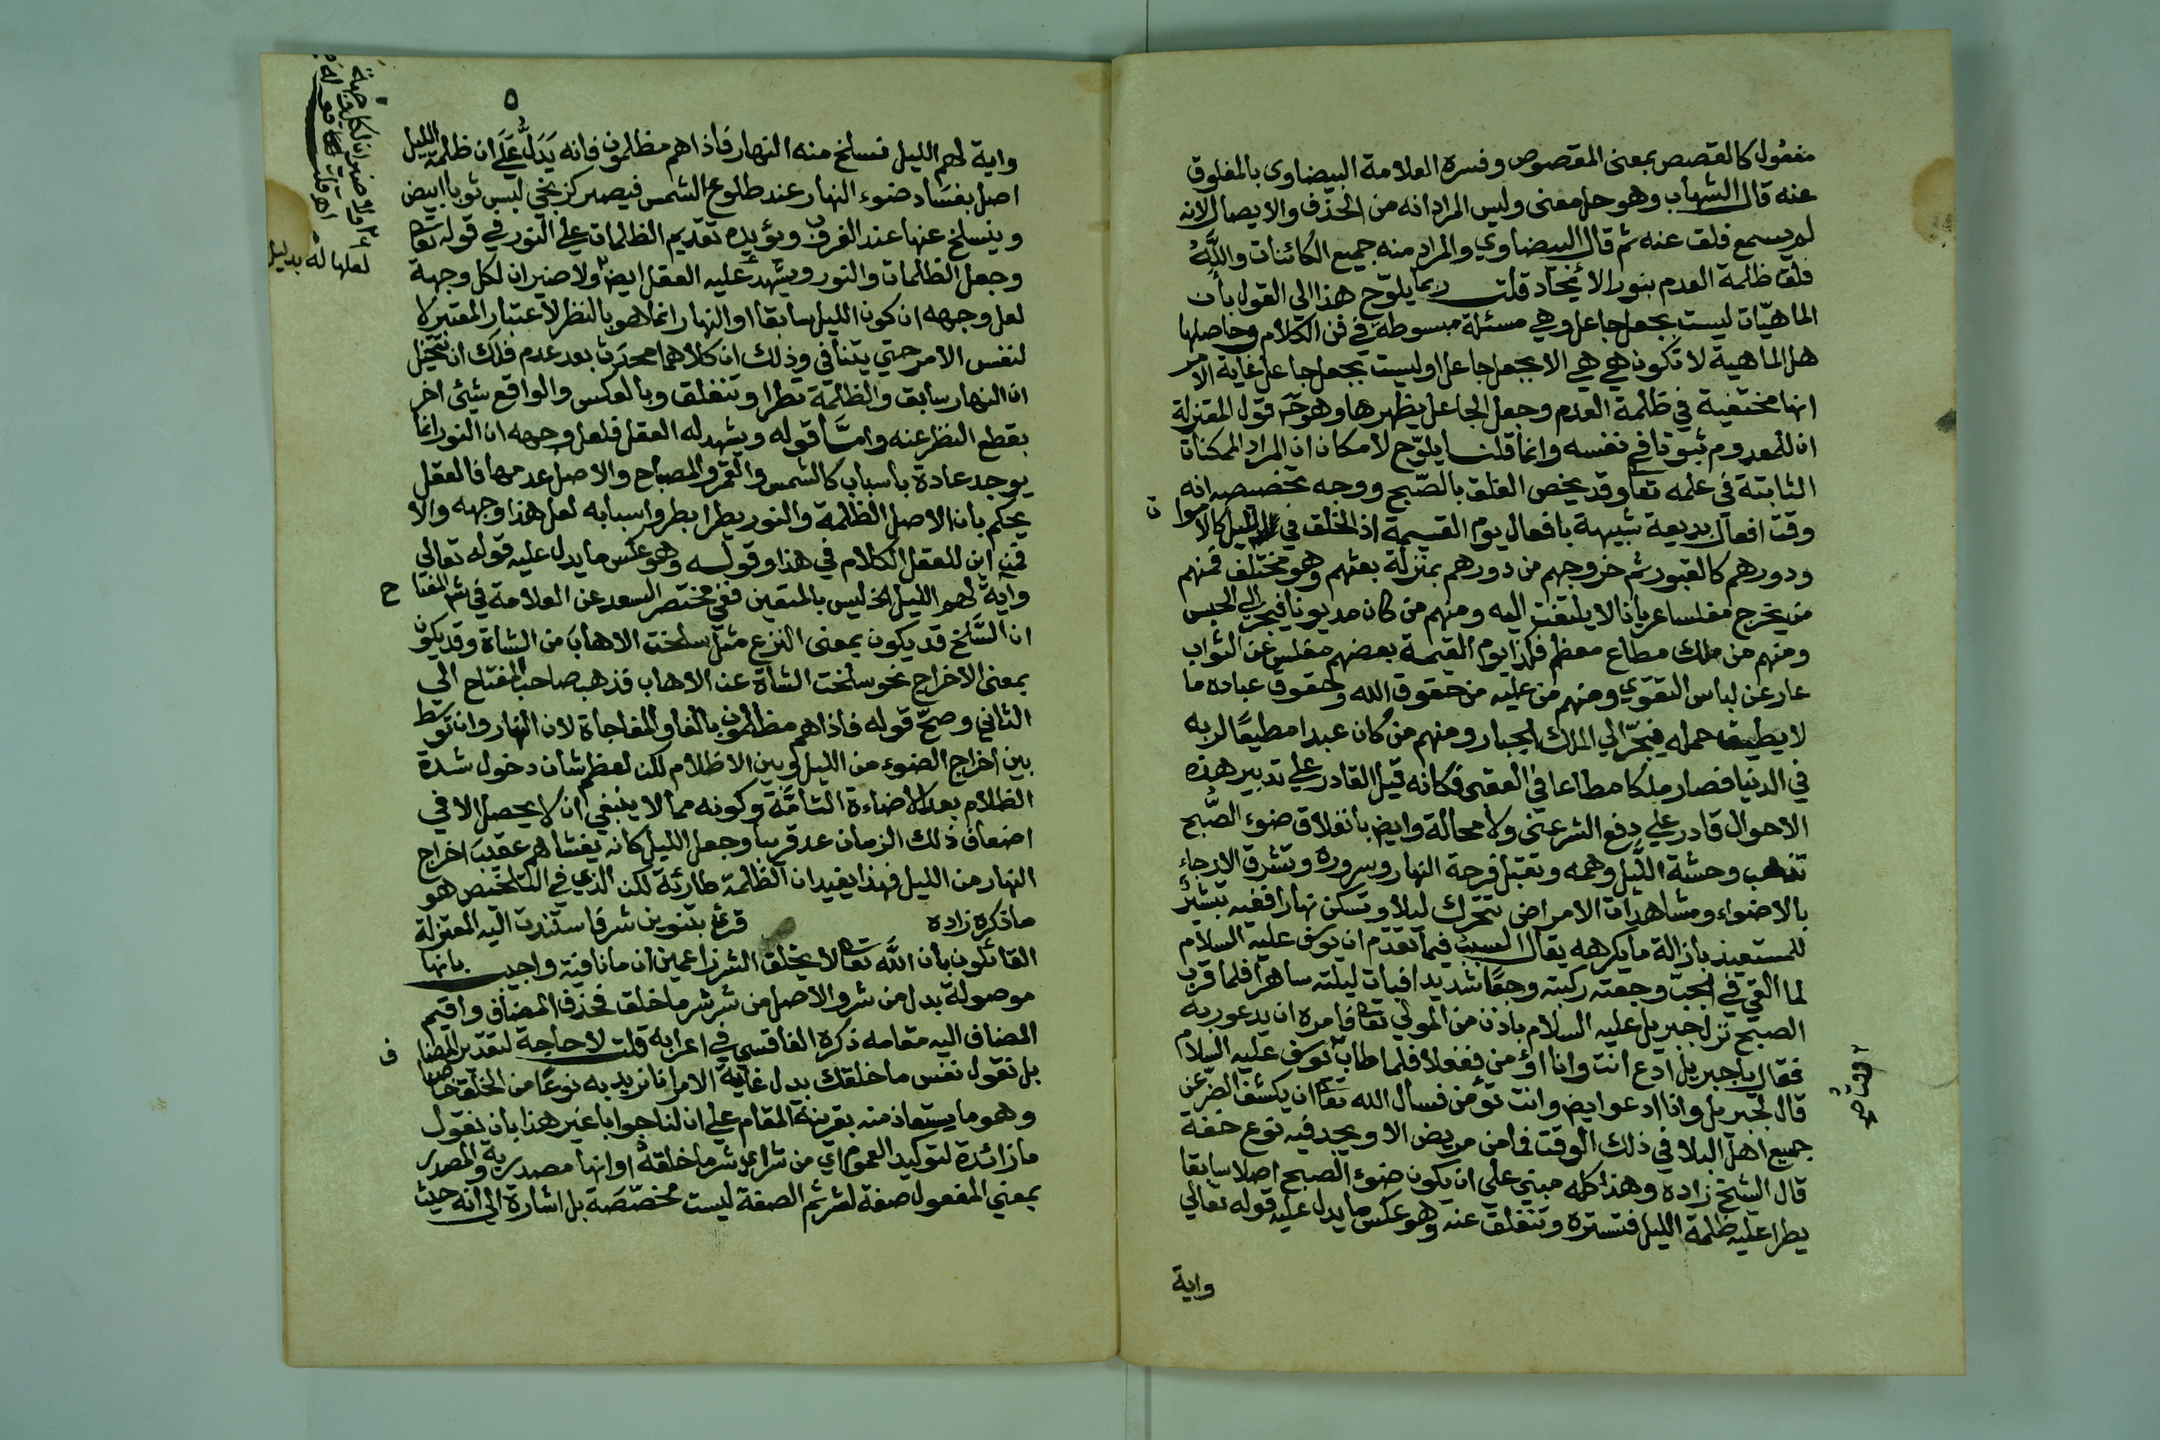 مفعول كالقصص بمعنى المقصوص وفسره العلامة البيضاوى بالمفلوق
عنه قال الشهاب وهو حل معنى وليس المراد انه من الحذف والايصال لانه
لم يسمع فلق عنه ثم قال البيضاوي والمراد منه جميع الكائنات والله
فلق ظلمة العدم بنور الايجاد قلت ربما يلوح هذا الى القول بان
الماهيّات ليست بجعل جاعل وهي مسئلة مبسوطة في فن الكلام وحاصلها
هل الماهية لا تكون هي هي الا بجعل جاعل اوليست بجعل جاعل غاية الامر
انها مختفية في ظلمة العدم وجعل الجاعل يظهرها وهو قول المعتزلة
ان للمعدوم ثبوتا في نفسه وانما قلنا يلوّح لامكان ان المراد الممكنات
الثابتة في علمه تعا وقد يخص الفلق بالصّبح ووجه تخصيصه انه
وقت افعال بديعة شبيهة بافعال يوم القيمة اذ الخلق في الليل كالاموا ت
ودورهم كالقبور ثم خروجهم من دورهم بمنزلة بعثهم وهو مختلف فمنهم
من يخرج مفلسا عريانا لا يلتفت اليه ومنهم من كان مديونا فيجر الى الحبس
ومنهم من ملك مطاع معظم فكذا يوم القيمة بعضهم مفلس عن الثواب
عار عن لباس التقوي ومنهم من عليه من حقوق الله وحقوق عباده ما
لا يطيق حمله فيجرّ الي الملك الجبار ومنهم من كان عبدا مطيعًا لربه
في الدنيا فصار ملكا مطاعا في العقبى فكانه قيل القادر على تدبير هذه
الاحوال قادر علي دفع الشر عنى ولا محالة وايض بانفلاق ضوء الصّبح
تذهب وحشة اللّيل وهمه وتقبل فرحة النهار وسروره وتشرق الارجاء
بالاضواء ومشاهدات الامراض تتحرك ليلا وتسكن نهارا ففيه تبشير
للمستعيذ بازالة ما يكرهه يقال السبب فيما تقدم ان يوسف عليه السلام
لما القي في الجب وجعته ركبته وجعًا شديدا فبات ليلته ساهرا فلما قرب
الصبح نزل جبريل عليه السلام باذن من المولي تعا فامره ان يدعو ربه
فقال يا جبريل ادع انت وانا اؤمن ففعلا فلما طاب يوسف عليه السلام
قال لجبريل وانا ادعو ايض وانت تؤمن فسال الله تعا ان يكشف الضرّ عن
جميع اهل البلا في ذلك الوقت فما من مريض الا ويجد فيه نوع خفة
قال الشيخ زاده وهذا كله مبني علي ان يكون ضوء الصبح اصلا سابقا
يطرا عليه ظلمة الليل فتستره وتنفلق عنه وهو عكس ما يدل عليه قوله تعالي
واية
٥
واية لهم الليل نسلخ منه النهار فاذا هم مظلمون فانه يَدَلّ عَلَى ان ظلمة الليل
اصل بفسَاد ضوء النهار عند طلوع الشمس فيصير كزنجي لبس ثوبا ابيض
وينسلخ عنها عند الغروب ويؤيده تقديم الظلمات علي النور في قوله تعا
وجعل الظلمات والنور ويشهد عليه العقل ايض ولا ضير ان لكل وجهة
لعل وجهه ان كون الليل سابقا او النهار انما هو بالنظر لاعتبار المعتبر لا
لنفس الامر حتي يتنافي وذلك ان كلاهما محدَث بعد عدم فلك ان تتخيل
ان النهار سابق والظلمة تطرا وتنفلق وبالعكس والواقع شيئ اخر
بقطع النظر عنه وامّا قوله ويشهد له العقل فلعل وجهه ان النور انما
يوجد عادة باسباب كالشمس والقمر والمصباح والاصل عدمها فالعقل
يحكم بان الاصل الظلمة والنور يطرا بطروا سبابه لعل هذا وجهه والا
فمن اين للعقل الكلام في هذا وقوله وهو عكس ما يدل عليه قوله تعالى
وآية لهم الليل الخ ليس بالمتعين ففي مختصر السعد عن العلامة في شم المفتا ح
ان السَّلخ قد يكون بمعنى النزع مثل سلخت الاهابَ من الشاة وقد يكون
بمعنى الاخراج نحو سلخت الشاة عن الاهاب فذهب صاحب المفتاح الي
الثاني وصحّ قوله فاذا هم مظلمون بالفا والمفاجاة لان النهار وان توسط
بين اخراج الضوء من الليل وبين الاظلام لكن لعظم شان دخول شدة
الظلام بعد الاضاءة التامَّة وكونه مما لا ينبغي ان لا يحصل الا في
اضعاف ذلك الزمان عد قريبا وجعل الليل كانه يغشاهم عقب اخراج
النهار من الليل فهذا يفيد ان الظلمة طارئة لكن الذي في التلخيص هو
ما ذكره زاده قرئ بتنوين شر فاستندت اليه المعتزلة
القائلون بان الله تعا لا يخلق الشر زاعمين ان ما نافية واجيب بانها
موصولة بدل من شر والاصل من شر شر ما خلق فحذف المضاف واقيم
المضاف اليه مقامه ذكره الفاقسي في اعرابه قلت لا حاجة لتقدير المضا ف
بل نقول نفس ما خلقك بدل غاية الامر انا نريد به نوعًا من الخلق خاصا
وهو ما يستعاذ منه بقرينة المقام علي ان لنا جوابا غير هذا بان نقول
ما زائدة لتوكيد العموم اي من شر اي شر ما خلقه اوانها مصدرية والمصدر
بمعني المفعول صفة لشر ثم الصفة ليست مخصّصَة بل اشارة الى انه حيث
لعلها له بدليل